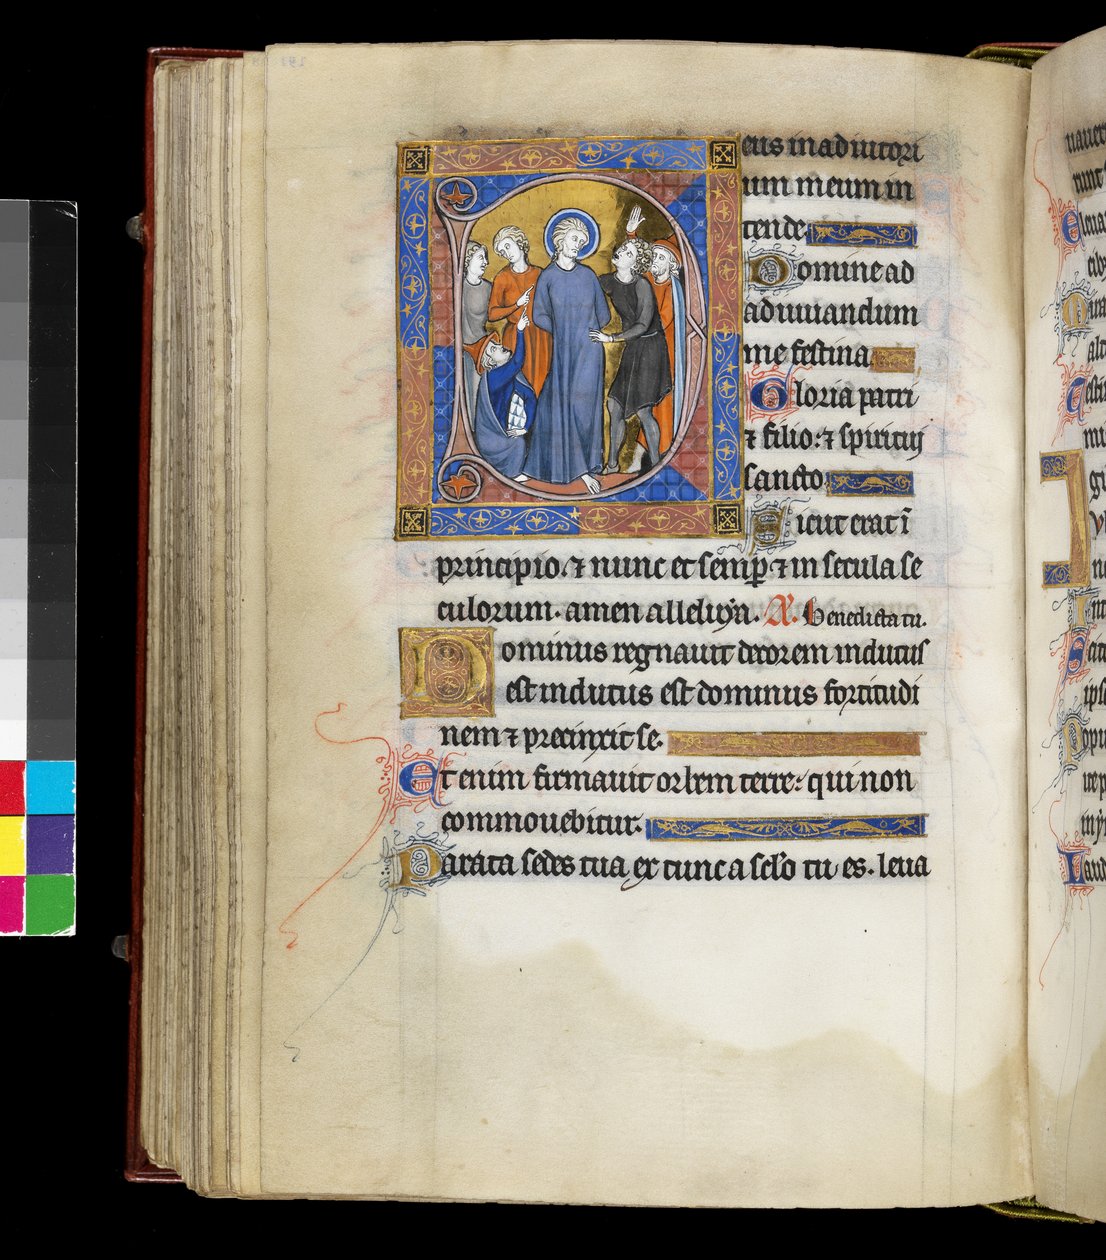 Deus in adiutori
um meum in
tende
Domine ad
adiuuandum
me festina
Gloria patri
⁊ filio: ⁊ spiritui
sancto
Sicut erat ī
principio. ⁊ nunc et semp̄ ⁊ in secula se
culorum. amen alleluya. A. Benedicta tu.
Dominus regnauit decorem indutus
est indutus est dominus fortitudi
nem ⁊ precinxit se.
Et enim firmauit orbem terre: qui non
commouebitur.
Parata sedes tua ex tunc a sc̄lo tu es. leua